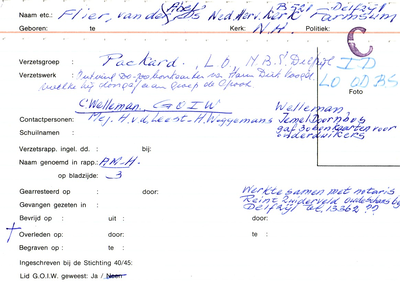 Abel B 521 Delfzijl
Naam etc.: Flier, van der, Ds Ned. Herv. Kerk Farmsum
Geboren: te Kerk: N.H. Politiek:
C
Verzetsgroep : Packard. LO, N.B.S. Delfzijl I D
Verzetswerk : LO OD BS
welke hij doorgaf aan groep
Foto
C. Welleman, G.O.I.W Welleman,
Contactpersonen: Mej. H. v.d. Leest - H. Wiggemans
Schuilnaam : gaf bonkaarten voor
onderduikers
Verzetsrapp. ingel. dd. : bij:
Naam genoemd in rapp.: A.N.H.
op bladzijde: 3
Gearresteerd op : door: Werkte samen met notaris
Gevangen gezeten in : Reint Zuiderveld
Bevrijd op : uit : door: Delfzijl tel. 13362 ??
Overleden op: door: te :
Begraven op : te :
Ingeschreven bij de Stichting 40/45:
Lid G.O.I.W. geweest: Ja / Neen